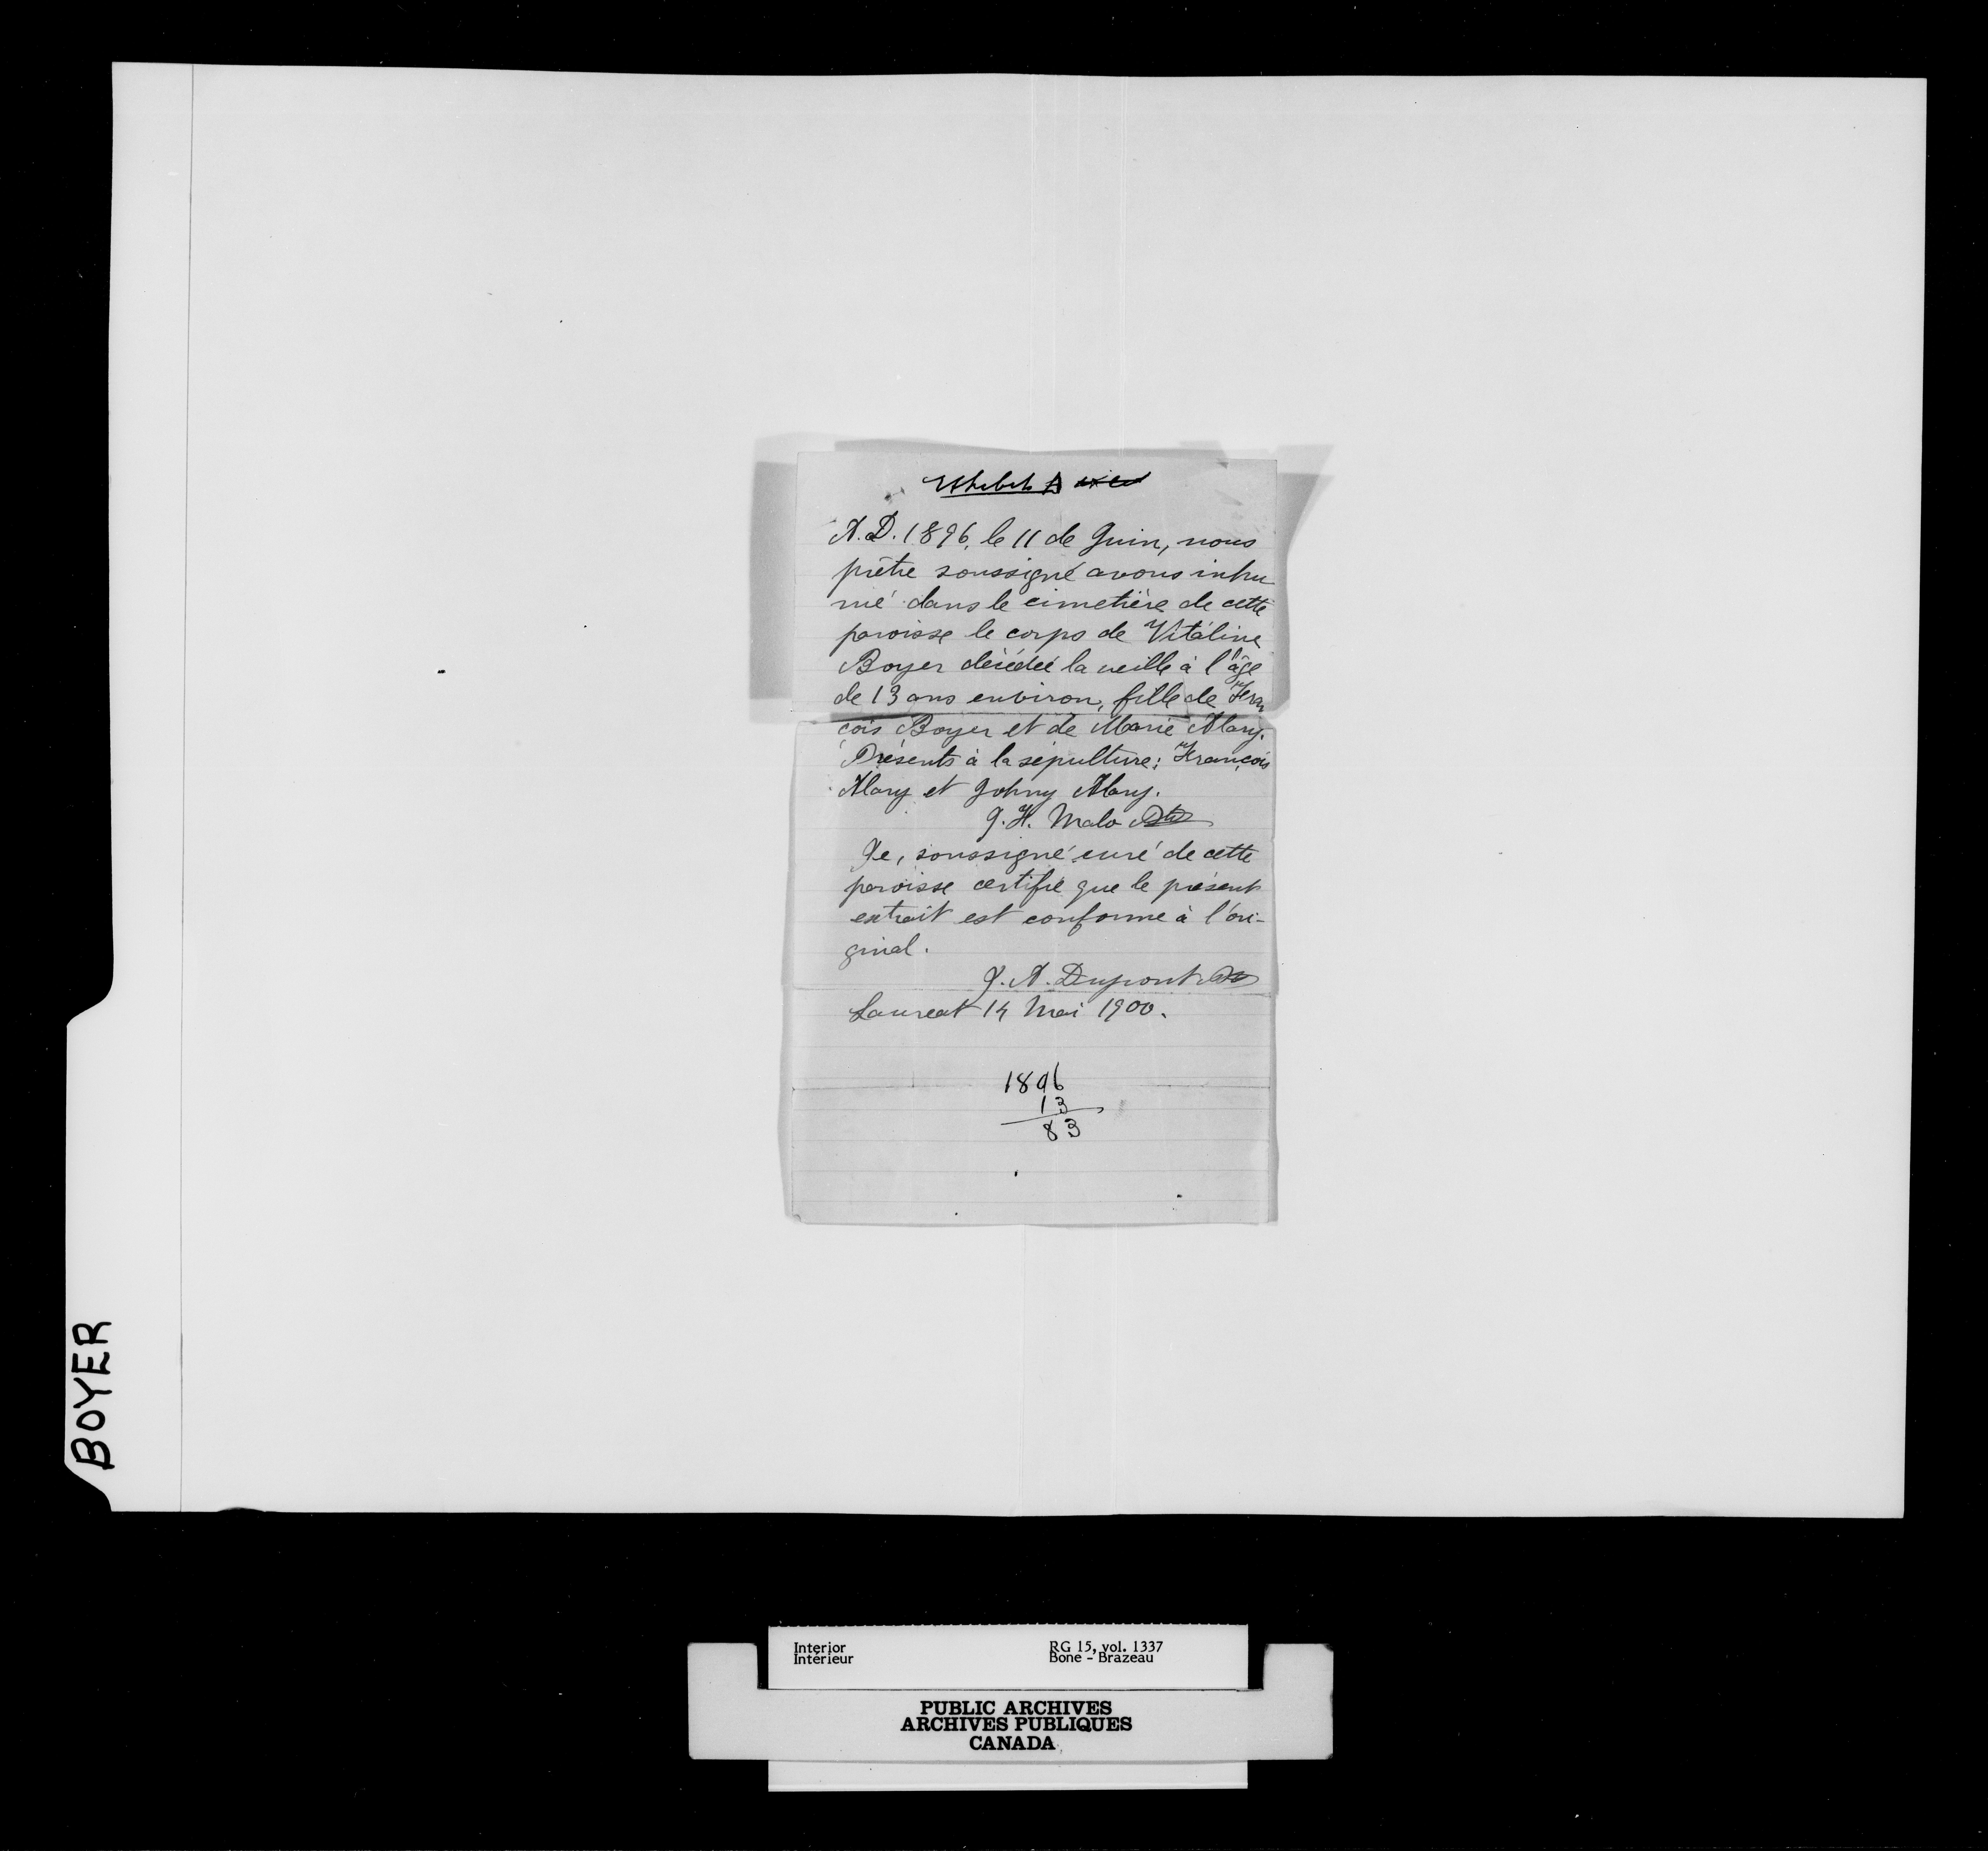 Exhibit A
A.D. 1896, le 11 de Juin, nous
prêtre soussigné avons inhu
mé dans le cimetière de cette
paroisse le corps de Vitaline
Boyer décédée la veille à l'âge
de 13 ans environ, fille de Fran
çois Boyer et de Marie Alary.
Présents à la sépulture: François
Alary et Johny Alary.
J. H. Malo Ptre
Je, soussigné curé de cette
paroisse certifie que le présent
extrait est conforme à l'ori-
ginal.
J. A. Dupont Ptre
Laureat 14 Mai 1900.
1896
13
83
BOYER
Interior RG 15, vol. 1337
Intérieur Bone - Brazeau
PUBLIC ARCHIVES
ARCHIVES PUBLIQUES
CANADA